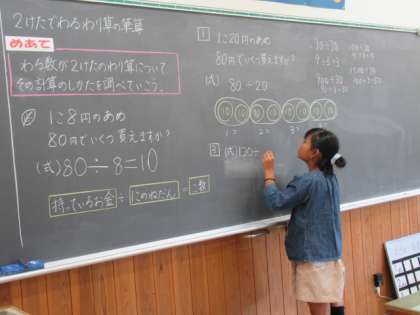 2けたでわるわり算の筆算
めあて
わる数が2けたのわり算について
その計算のしかたを調べていこう。
1こ8円のあめ
80円でいくつ買えますか?
(式)80÷8=10
持っているお金÷1このねだん=個数
1
1こ20円のあめ
80円でいくつ買えますか?
(式) 80÷20
10 10 10 10 10 10 10 10
1こ 2こ 3こ
2 (式)120÷